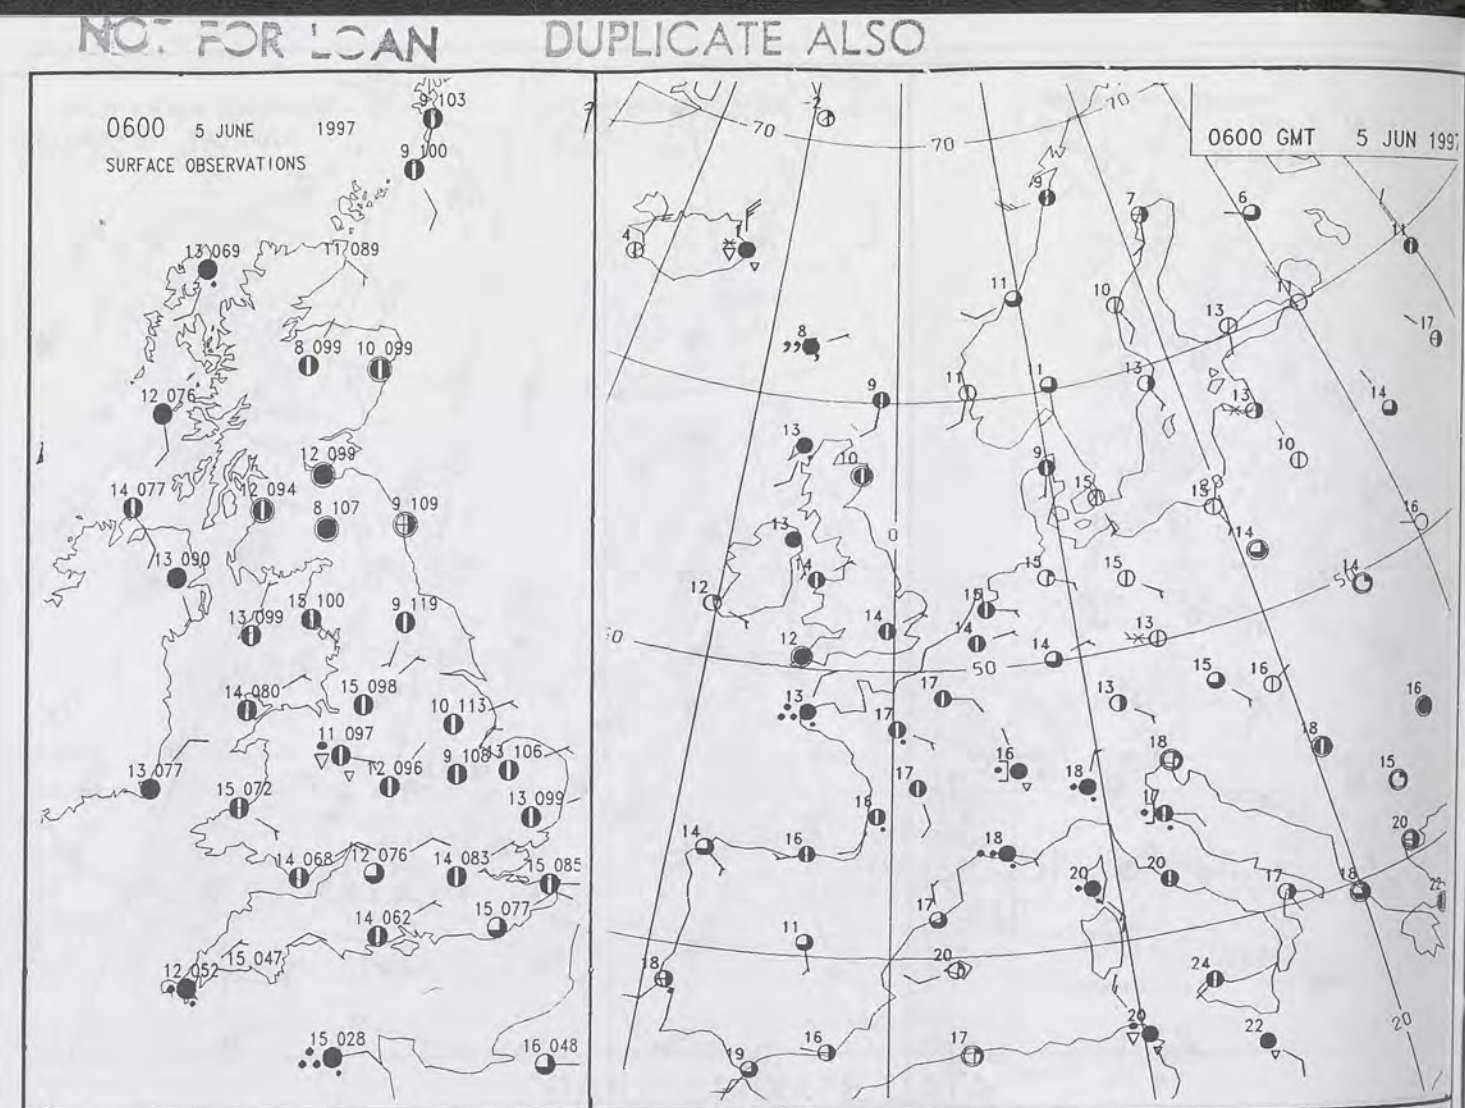 NOT FOR LOAN DUPLICATE ALSO
0600 5 JUNE 1997
SURFACE OBSERVATIONS
9 103
9 100
13 069
11 089
8 099
10 099
12 076
12 099
14 077
12 094
8 107
9 109
13 090
13 099
15 100
9 119
14 080
15 098
10 113
11 097
12 096
9 108
13 106
13 077
15 072
13 099
14 068
12 076
14 083
15 085
14 062
15 077
12 052
15 047
15 028
16 048
0600 GMT 5 JUN 1997
-2
70
70
70
9
7
6
11
4
1
11
10
13
11
17
8
9
11
11
13
13
14
13
10
10
9
15
15
16
13
0
14
14
12
14
15
15
14
15
50
14
13
12
14
50
13
17
17
13
15
16
16
18
16
18
18
15
17
16
17
20
14
16
18
20
20
17
18
11
17
18
20
24
20
19
16
17
20
22